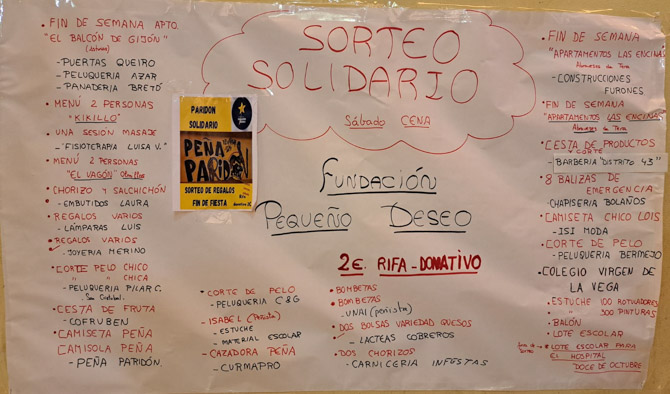 SORTEO
SOLIDARIO
Sábado CENA
FUNDACIÓN
PEQUEÑO DESEO
2€ RIFA-DONATIVO
• FIN DE SEMANA APTO.
"EL BALCÓN DE GIJÓN"
- PUERTAS QUEIRO
- PELUQUERIA AZAR
- PANADERIA BRETÓ
• MENÚ 2 PERSONAS
"KIKILLO"
• UNA SESIÓN MASAJE
- "FISIOTERAPIA LUISA V."
• MENÚ 2 PERSONAS
"EL VAGÓN"
• CHORIZO Y SALCHICHÓN
- EMBUTIDOS LAURA
• REGALOS VARIOS
- LÁMPARAS LUIS
• REGALOS VARIOS
- JOYERIA MERINO
• CORTE PELO CHICO
" " CHICA
- PELUQUERIA PILAR C.
San Cristobal.
• CESTA DE FRUTA
- COFRUBEN
• CAMISETA PEÑA
CAMISOLA PEÑA
- PEÑA PARIDÓN.
PARIDON
SOLIDARIO
PEÑA
PARIDO
SORTEO DE REGALOS
FIN DE FIESTA
• CORTE DE PELO
- PELUQUERIA C&G
- ISABEL (Peñista)
- ESTUCHE
- MATERIAL ESCOLAR
- CAZADORA PEÑA
- CURMAPRO
• BOMBETAS
• BOMBETAS
- UNAI (peñista)
• DOS BOLSAS VARIEDAD QUESOS
- LACTEAS COBREROS
• DOS CHORIZOS
- CARNICERIA INFESTAS
• FIN DE SEMANA
"APARTAMENTOS LAS ENCINAS
- CONSTRUCCIONES
FURONES
• FIN DE SEMANA
"APARTAMENTOS LAS ENCINAS
• CESTA DE PRODUCTOS
Y CORTE
- BARBERIA "DISTRITO 43"
• 8 BALIZAS DE
EMERGENCIA
CHAPISERIA BOLAÑOS
• CAMISETA CHICO LOIS
- ISI MODA
• CORTE DE PELO
- PELUQUERIA BERMEJO
• COLEGIO VIRGEN DE
LA VEGA
- ESTUCHE 100 ROTULADORES
" 300 PINTURAS
- BALÓN
- LOTE ESCOLAR
* LOTE ESCOLAR PARA
EL HOSPITAL
"DOCE DE OCTUBRE"